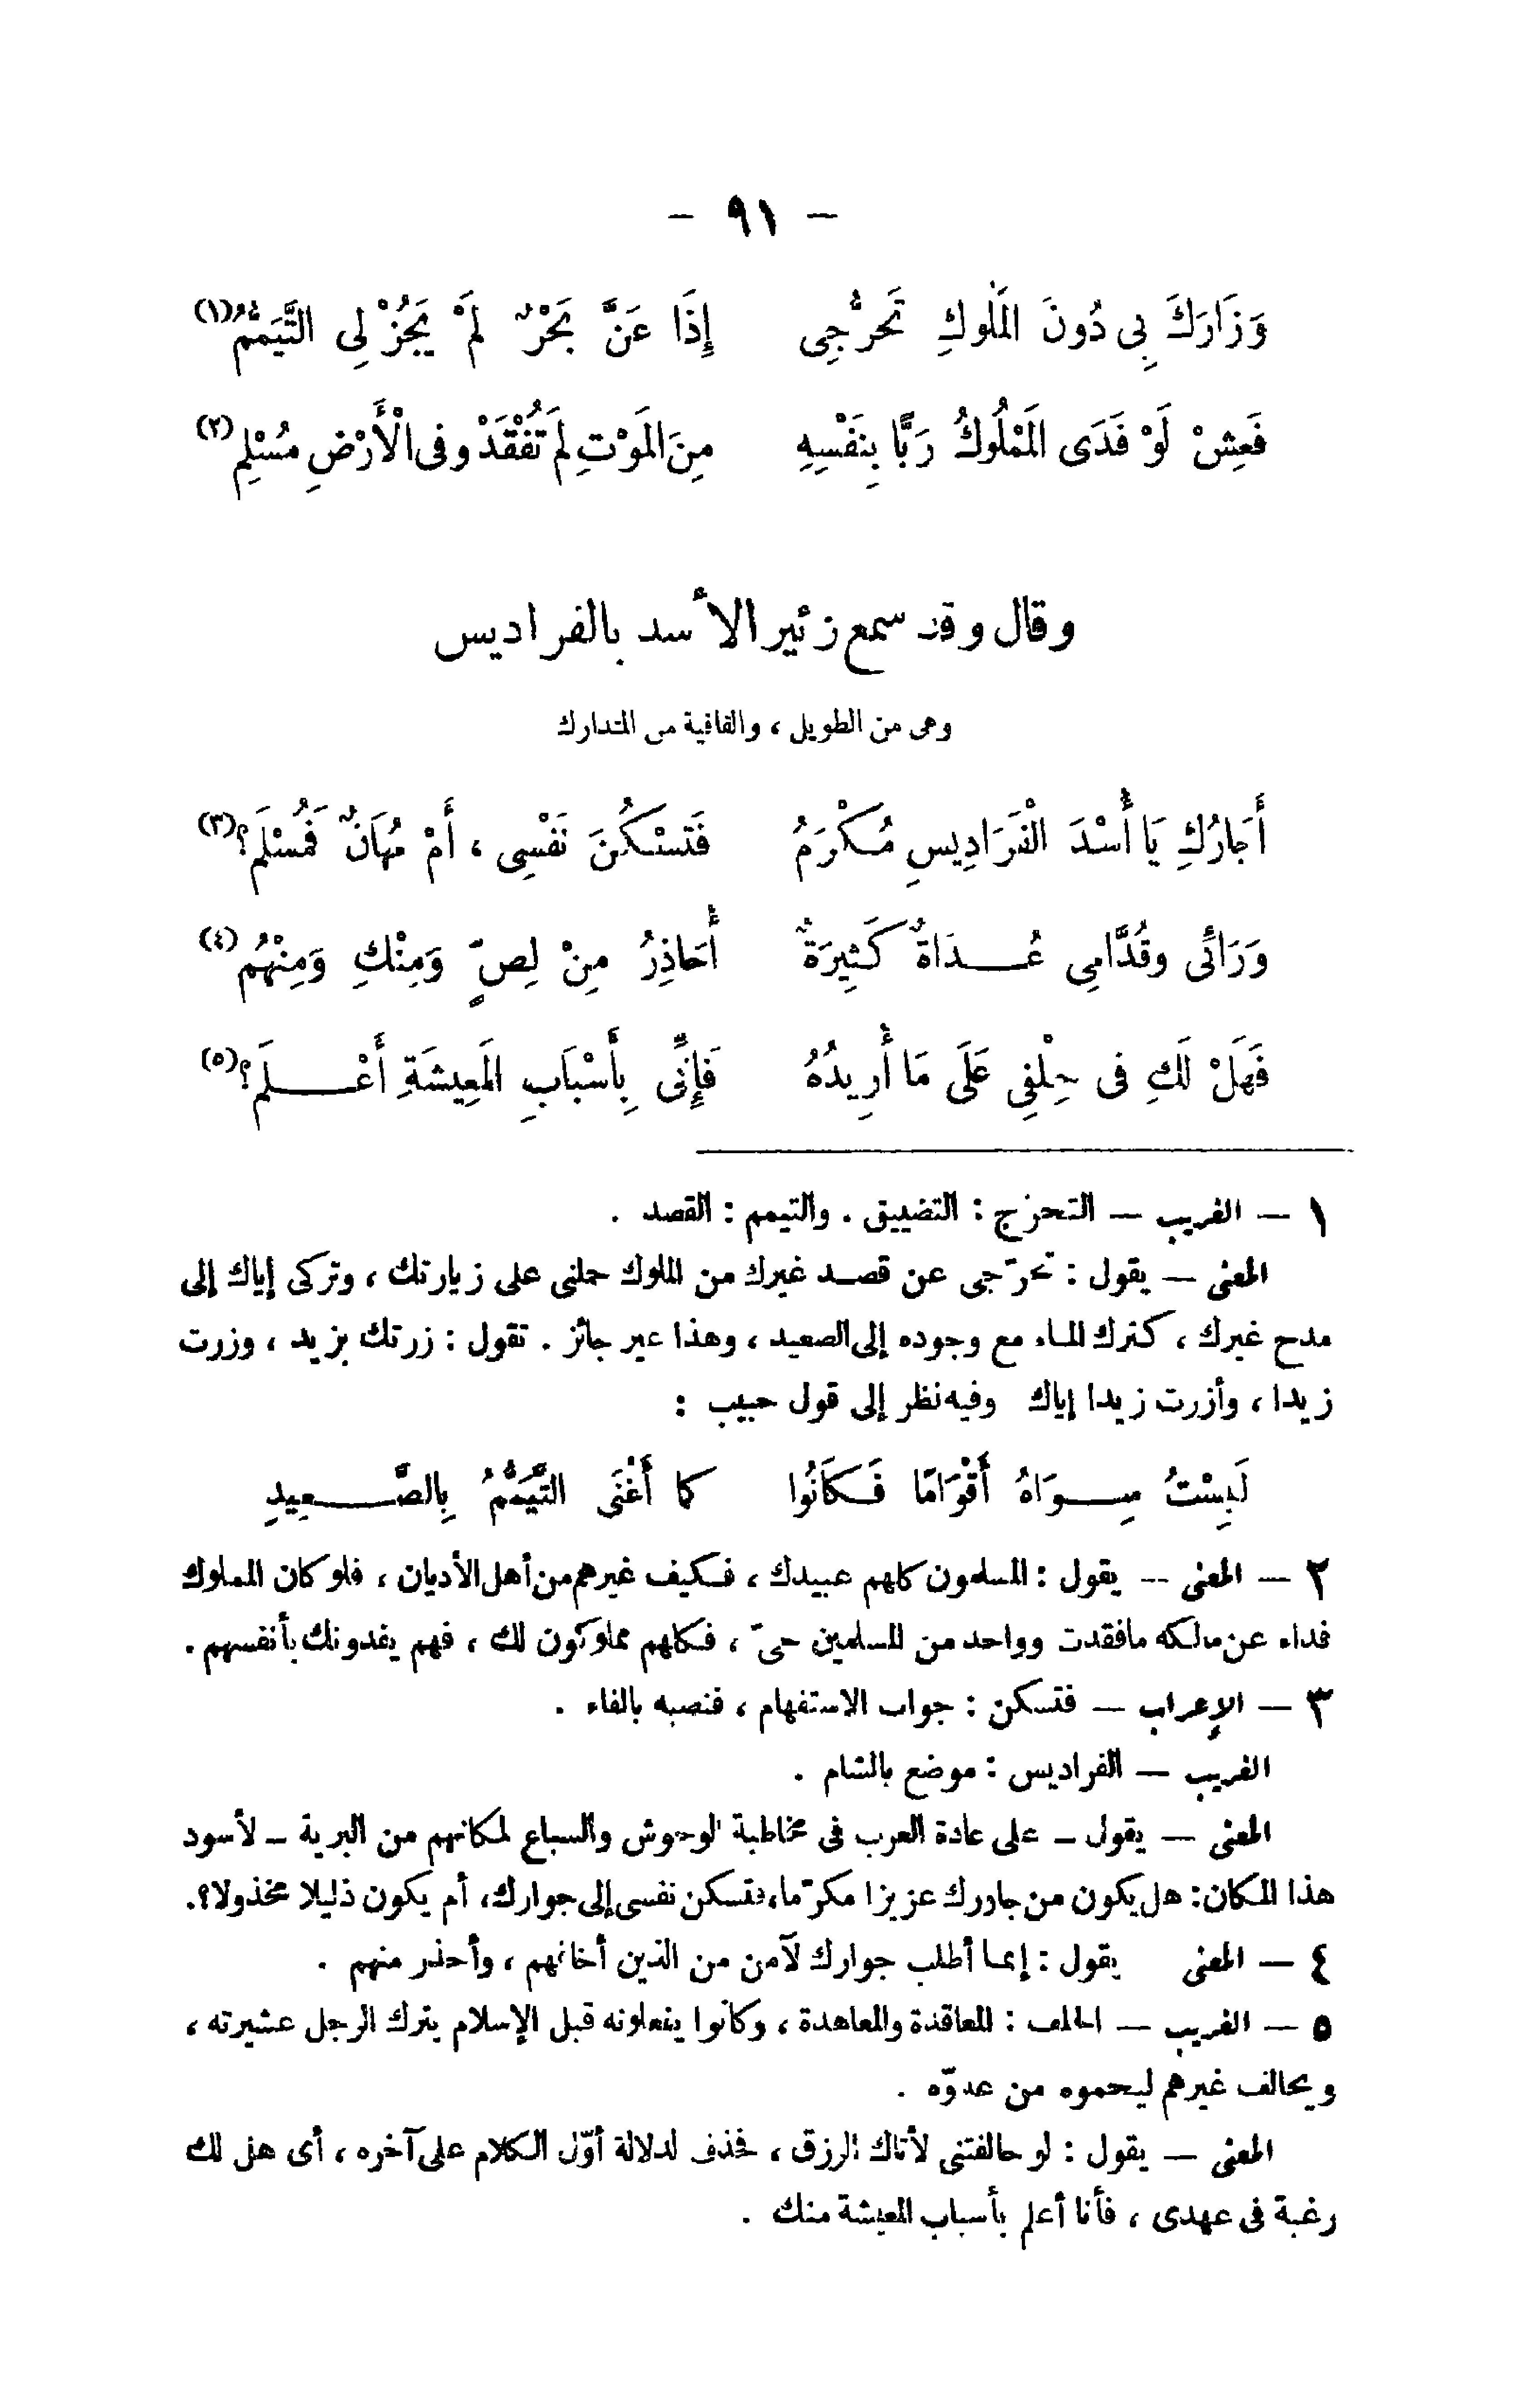 - ٩١ -
وَزَارَكَ بِى دُونَ الْمُلوكِ تَحَرُّجِى إِذَا عَنَّ بَحْرٌ لَمْ يَجُزْ لِى التَّيَمُّمُ (١)
فَعِشْ لَوْ فَدَى الْمَمْلُوكُ رَبًّا بِنَفْسِهِ مِنَ الْمَوْتِ لَمْ تُفْقَدْ وفى الْأَرْضِ مُسْلِم (٢)
وقال وقد سمع زئير الأسد بالفراديس
وهى من الطويل ، والقافية من المتدارك
أَجَارُكِ يَا أُسْدَ الْفَرَادِيسِ مُكْرَمُ فَتَسْكُنَ نَفْسِى ، أَمْ مُهَانٌ فَمُسْلَمُ ؟ (٣)
وَرَائى وقُدَّامِى عُـدَاةٌ كَثِيرَةٌ أُحَاذِرُ مِنْ لِصٍّ وَمِنْكِ وَمِنْهُمُ (٤)
فَهَلْ لَكِ فى حِلْفِى عَلَى مَا أُرِيدُهُ فَإِنِّى بِأَسْبَابِ الْمَعِيشَةِ أَعْـلَمُ ؟ (٥)
١ — الغريب — التحرّج : التضييق . والتيمم : القصد .
المعنى — يقول : تحرّجى عن قصـد غيرك من الملوك حملنى على زيارتك ، وتركى إياك إلى
مدح غيرك ، كترك المـاء مع وجوده إلى الصعيد ، وهذا غير جائز . تقول : زرتك بزيد ، وزرت
زيدا ، وأزرت زيدا إياك وفيه نظر إلى قول حبيب :
لَبِسْتُ سِـوَاهُ أَقْوَامًا فَـكَانُوا كما أَغْنَى التَّيَمُّمُ بِالصَّـعِيدِ
٢ — المعنى -- يقول : المسلمون كلهم عبيدك ، فـكيف غيرهم من أهل الأديان ، فلو كان المملوك
فداء عن مالـكه مافقدت وواحد من المسلمين حىّ ، فـكلهم مملوكون لك ، فهم يفدونك بأنفسهم .
٣ — الإعراب — فتسكن : جواب الاستفهام ، فنصبه بالفاء .
الغريب — الفراديس : موضع بالشام .
المعنى — يقول — على عادة العرب فى مخاطبة الوحوش والسباع لمكانهم من البرية — لأسود
هذا المكان : هل يكون من جاورك عزيزا مكرّما، فتسكن نفسى إلى جوارك، أم يكون ذليلا مخذولا؟.
٤ — المعنى يقول : إنمـا أطلب جوارك لآمن من الذين أخافهم ، وأحذر منهم .
٥ — الغريب — الحلف : المعاقدة والمعاهدة ، وكانوا يفعلونه قبل الإسلام يترك الرجل عشيرته ،
ويحالف غيرهم ليحموه من عدوّه .
المعنى — يقول : لو حالفتنى لأتاك الرزق ، فحذف لدلالة أوّل الكلام على آخره ، أى هل لك
رغبة فى عهدى ، فأنا أعلم بأسباب المعيشة منك .